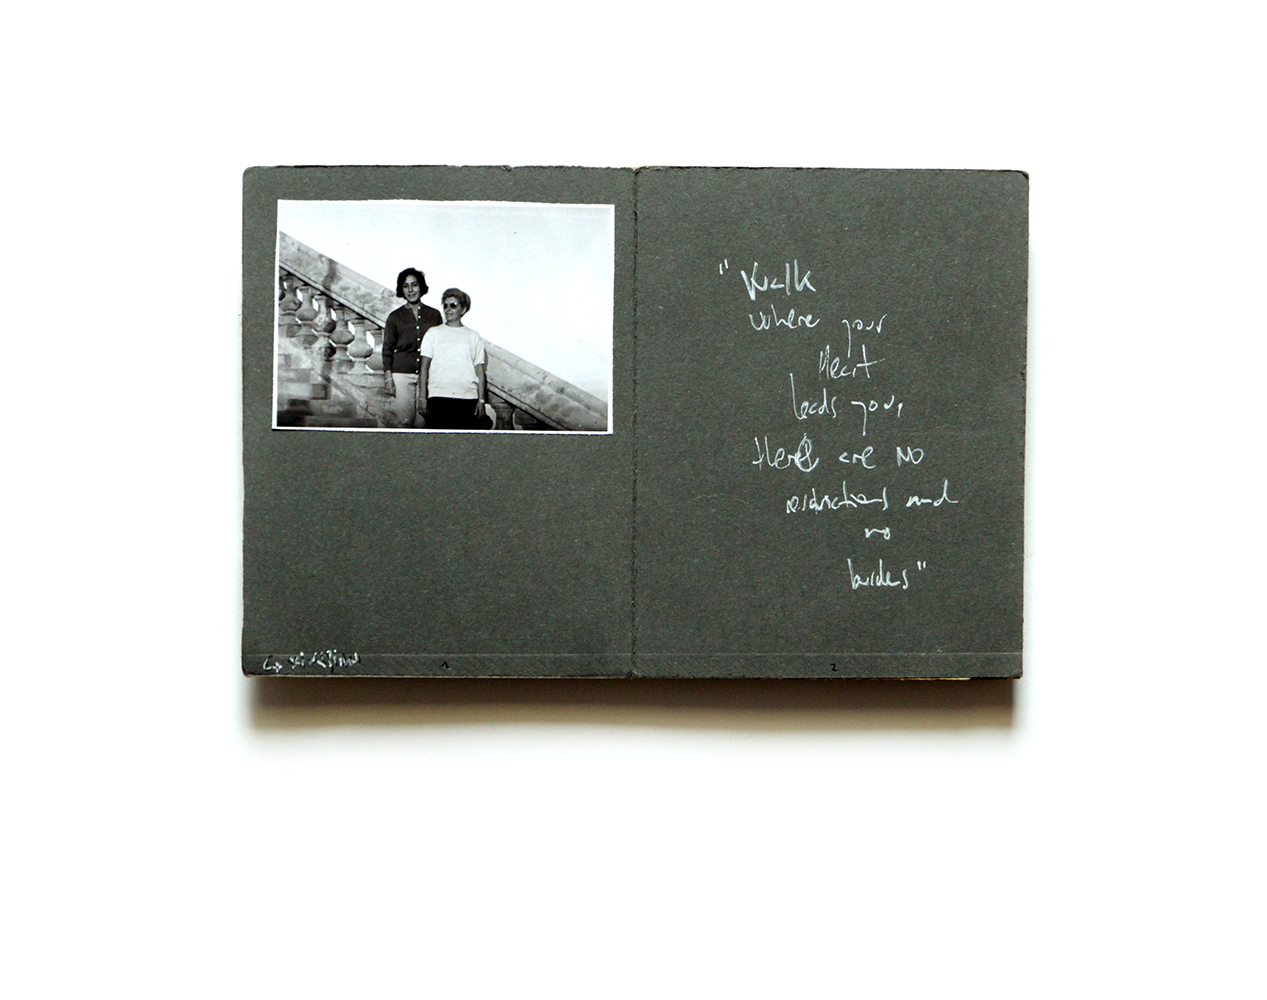 1
"Walk
where your
Heart
leads you,
there are no
restrictions and
no
burdes"
2